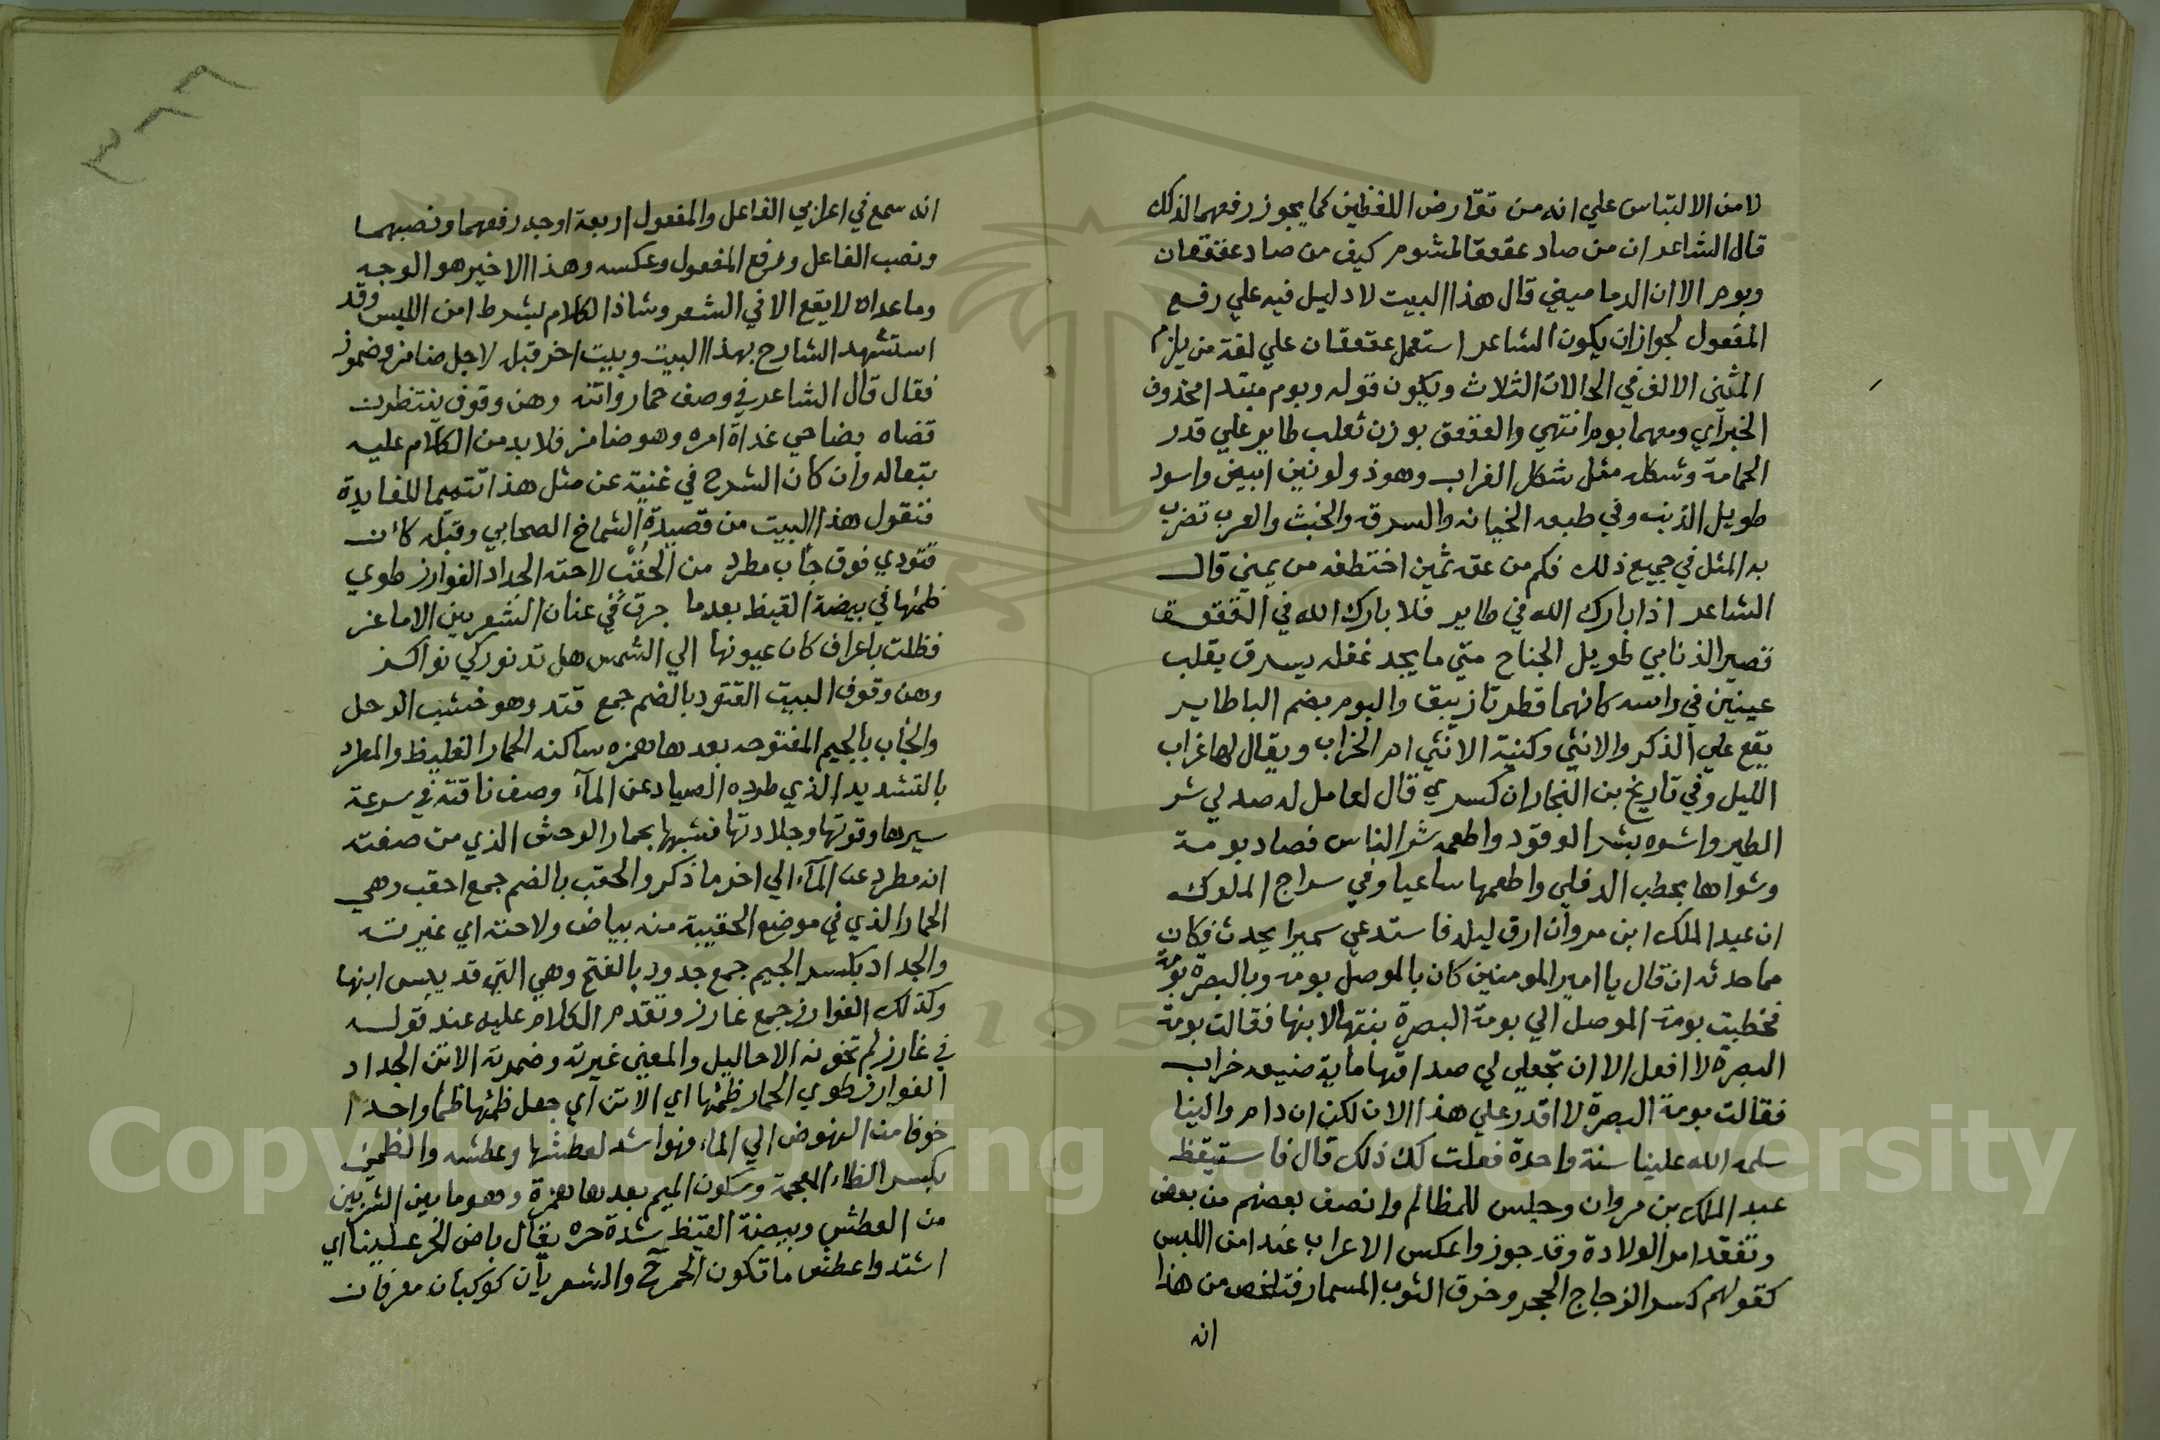 لامن الالتباس علي انه من تقارض اللفظين كما يجوز رفعهما لذلك
قال الشاعر ان من صاد عقعقا لمشوم كيف من صاد عقعقان
وبوم الا ان الدماميني قال هذا البيت لا دليل فيه علي رفع
المفعول لجواز ان يكون الشاعر استعمل عقعقان علي لغة من يلزم
المثنى الالف في الحالات الثلاث ويكون قوله وبوم مبتدا محذوف
الخبر اي ومعهما بوم انتهي والعقعق بوزن ثعلب طاير علي قدر
الحمامة وشكله مثل شكل الغراب وهو ذو لونين ابيض واسود
طويل الذنب وفي طبعه الخيانه والسرقه والخبث والعرب تضرب
به المثل في جميع ذلك فكم من عقد ثمين اختطفه من يمني قال
الشاعر اذا بارك الله في طاير فلا بارك الله في العقعق
قصير الذنابي طويل الجناح متي ما يجد غفله يسرق يقلب
عينين في راسه كانهما قطرتا زيبق والبوم بضم البا طاير
يقع علي الذكر والانثي وكنية الانثي ام الخراب ويقال لها غراب
الليل وفي تاريخ بن النجار ان كسري قال لعامل له صد لي شر
الطير واشوه بشر الوقود واطعمه شر الناس فصاد بومة
وشواها بحطب الدفلي واطعمها ساعيا وفي سراج الملوك
ان عبد الملك ابن مروان ارق ليله فاستدعي سميرا يحدث فكان
مما حدثه ان قال يا امير المومنين كان بالموصل بومه وبالبصرة بومة
فخطبت بومة الموصل الي بومة البصرة بنتها لابنها فقالت بومة
البصرة لا افعل الا ان تجعلي لي صداقها ماية ضيعه خراب
فقالت بومة البصرة لا اقدر علي هذا الان لكن ان دام والينا
سلمه الله علينا سنة واحدة فعلت لك ذلك قال فاستيقظ
عبد الملك بن مروان وجلس للمظالم وانصف بعضهم من بعض
وتفقد امر الولادة وقد جوزوا عكس الاعراب عند امن اللبس
كقولهم كسر الزجاج الحجر وخرق الثوب المسمار فتلخص من هذا
انه
٣٨٨
انه سمع في اعرابي الفاعل والمفعول اربعة اوجه رفعهما ونصبهما
ونصب الفاعل ورفع المفعول وعكسه وهذا الاخير هو الوجه
وما عداه لا يقع الا في الشعر وشاذ الكلام بشرط امن اللبس وقد
استشهد الشارح بهذا البيت وبيت اخر قبله لاجل ضامز وضموز
فقال قال الشاعر في وصف حمار واتنه وهن وقوف ينتظرن
قضاه بضاحي غداة امره وهو ضامز فلا بد من الكلام عليه
تبعا له وان كان الشرح في غنية عن مثل هذا تتميما للفايدة
فنقول هذا البيت من قصيدة الشماخ الصحابي وقبله كان
قتودي فوق جأب مطرد من الحُقْب لاحته الجداد الغوارز طوي
ظمئها في بيضة القيظ بعدما جرت في عنان الشعريين الاماعز
فظلت باعراف كان عيونها الي الشمس هل تدنو ركي نواكز
وهن وقوف البيت القتود بالضم جمع قتد وهو خشب الرحل
والجأب بالجيم المفتوحه بعدها همزه ساكنه الحمار الغليظ والمطرد
بالتشديد الذي طرده الصياد عن المآء وصف ناقته في سرعة
سيرها وقوتها وجلادتها فشبهها بحمار الوحش الذي من صفته
انه مطرد عن المآء الي اخر ما ذكر والحقب بالضم جمع احقب وهي
الحمار الذي في موضع الحقيبة منه بياض ولاحته اي غيرته
والجداد بكسر الجيم جمع جدود بالفتح وهي التي قد يبس لبنها
وكذلك الغوارز جمع غارز وتقدم الكلام عليه عند قوله
في غارز لم تخونه الاحاليل والمعني غيرته وضمرته الاتن الجداد
الغوارز طوي الحمار ظمئها اي الاتن اي جعل ظمئها ظما واحدا
خوفا من النهوض الي الماء فهو اشد لعطشها وعطشه والظمئ
بكسر الظاء المعجمة وسكون الميم بعدها همزة وهو ما بين الشربين
من العطش وبيضة القيظ شدة حره يقال باض الحر علينا اي
اشتد واعطش ما تكون الحمر والشعريان كوكبان معرفان